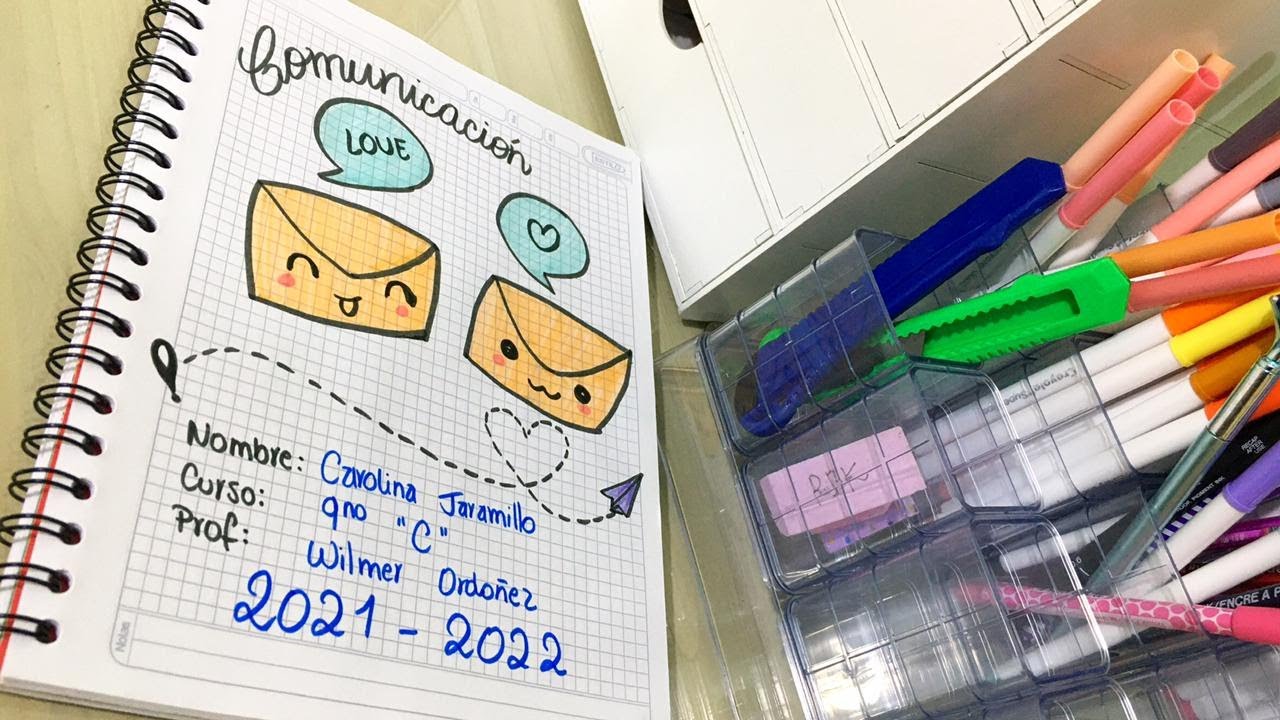 Comunicación
LOVE
Nombre: Carolina Jaramillo
Curso: 9no "C"
Prof: Wilmer Ordoñez
2021 - 2022
Notas
RECAP AFTER USE